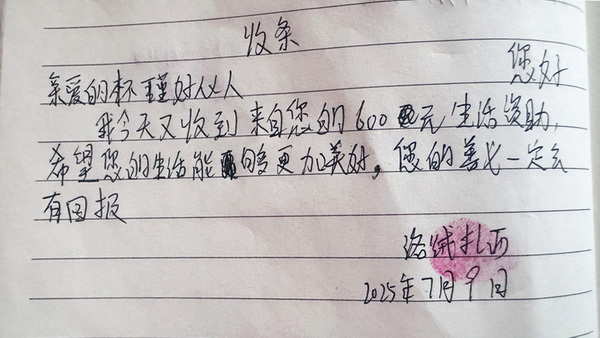 收条
亲爱的杯瑾好心人 您好
我今天又收到来自您的600元生活资助,
希望您的生活能够更加美好,您的善心一定会
有回报
洛绒扎西
2025年7月9日